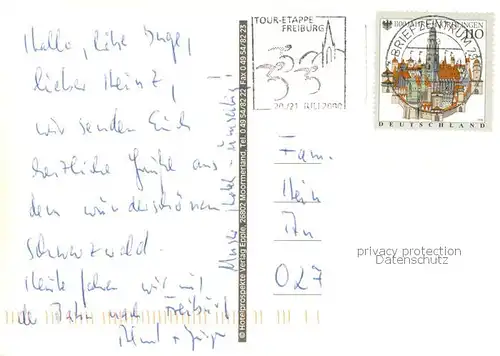 Hallo, liebe Inge,
lieber Heinz,
wir senden Euch
herzliche Grüße aus
dem wunderschönen
Schwarzwald.
Heute fahren wir mit
der Bahn nach Freiburg
© Hotelprospekte Verlag Epple, 26802 Moormerland, Tel. 0 49 54/82 22, Fax 0 49 54/82 23
TOUR-ETAPPE
FREIBURG
20./21. JULI 2000
BRIEFZENTRUM
110
DEUTSCHLAND
Fam.
Hein
An
027
privacy protection
Datenschutz